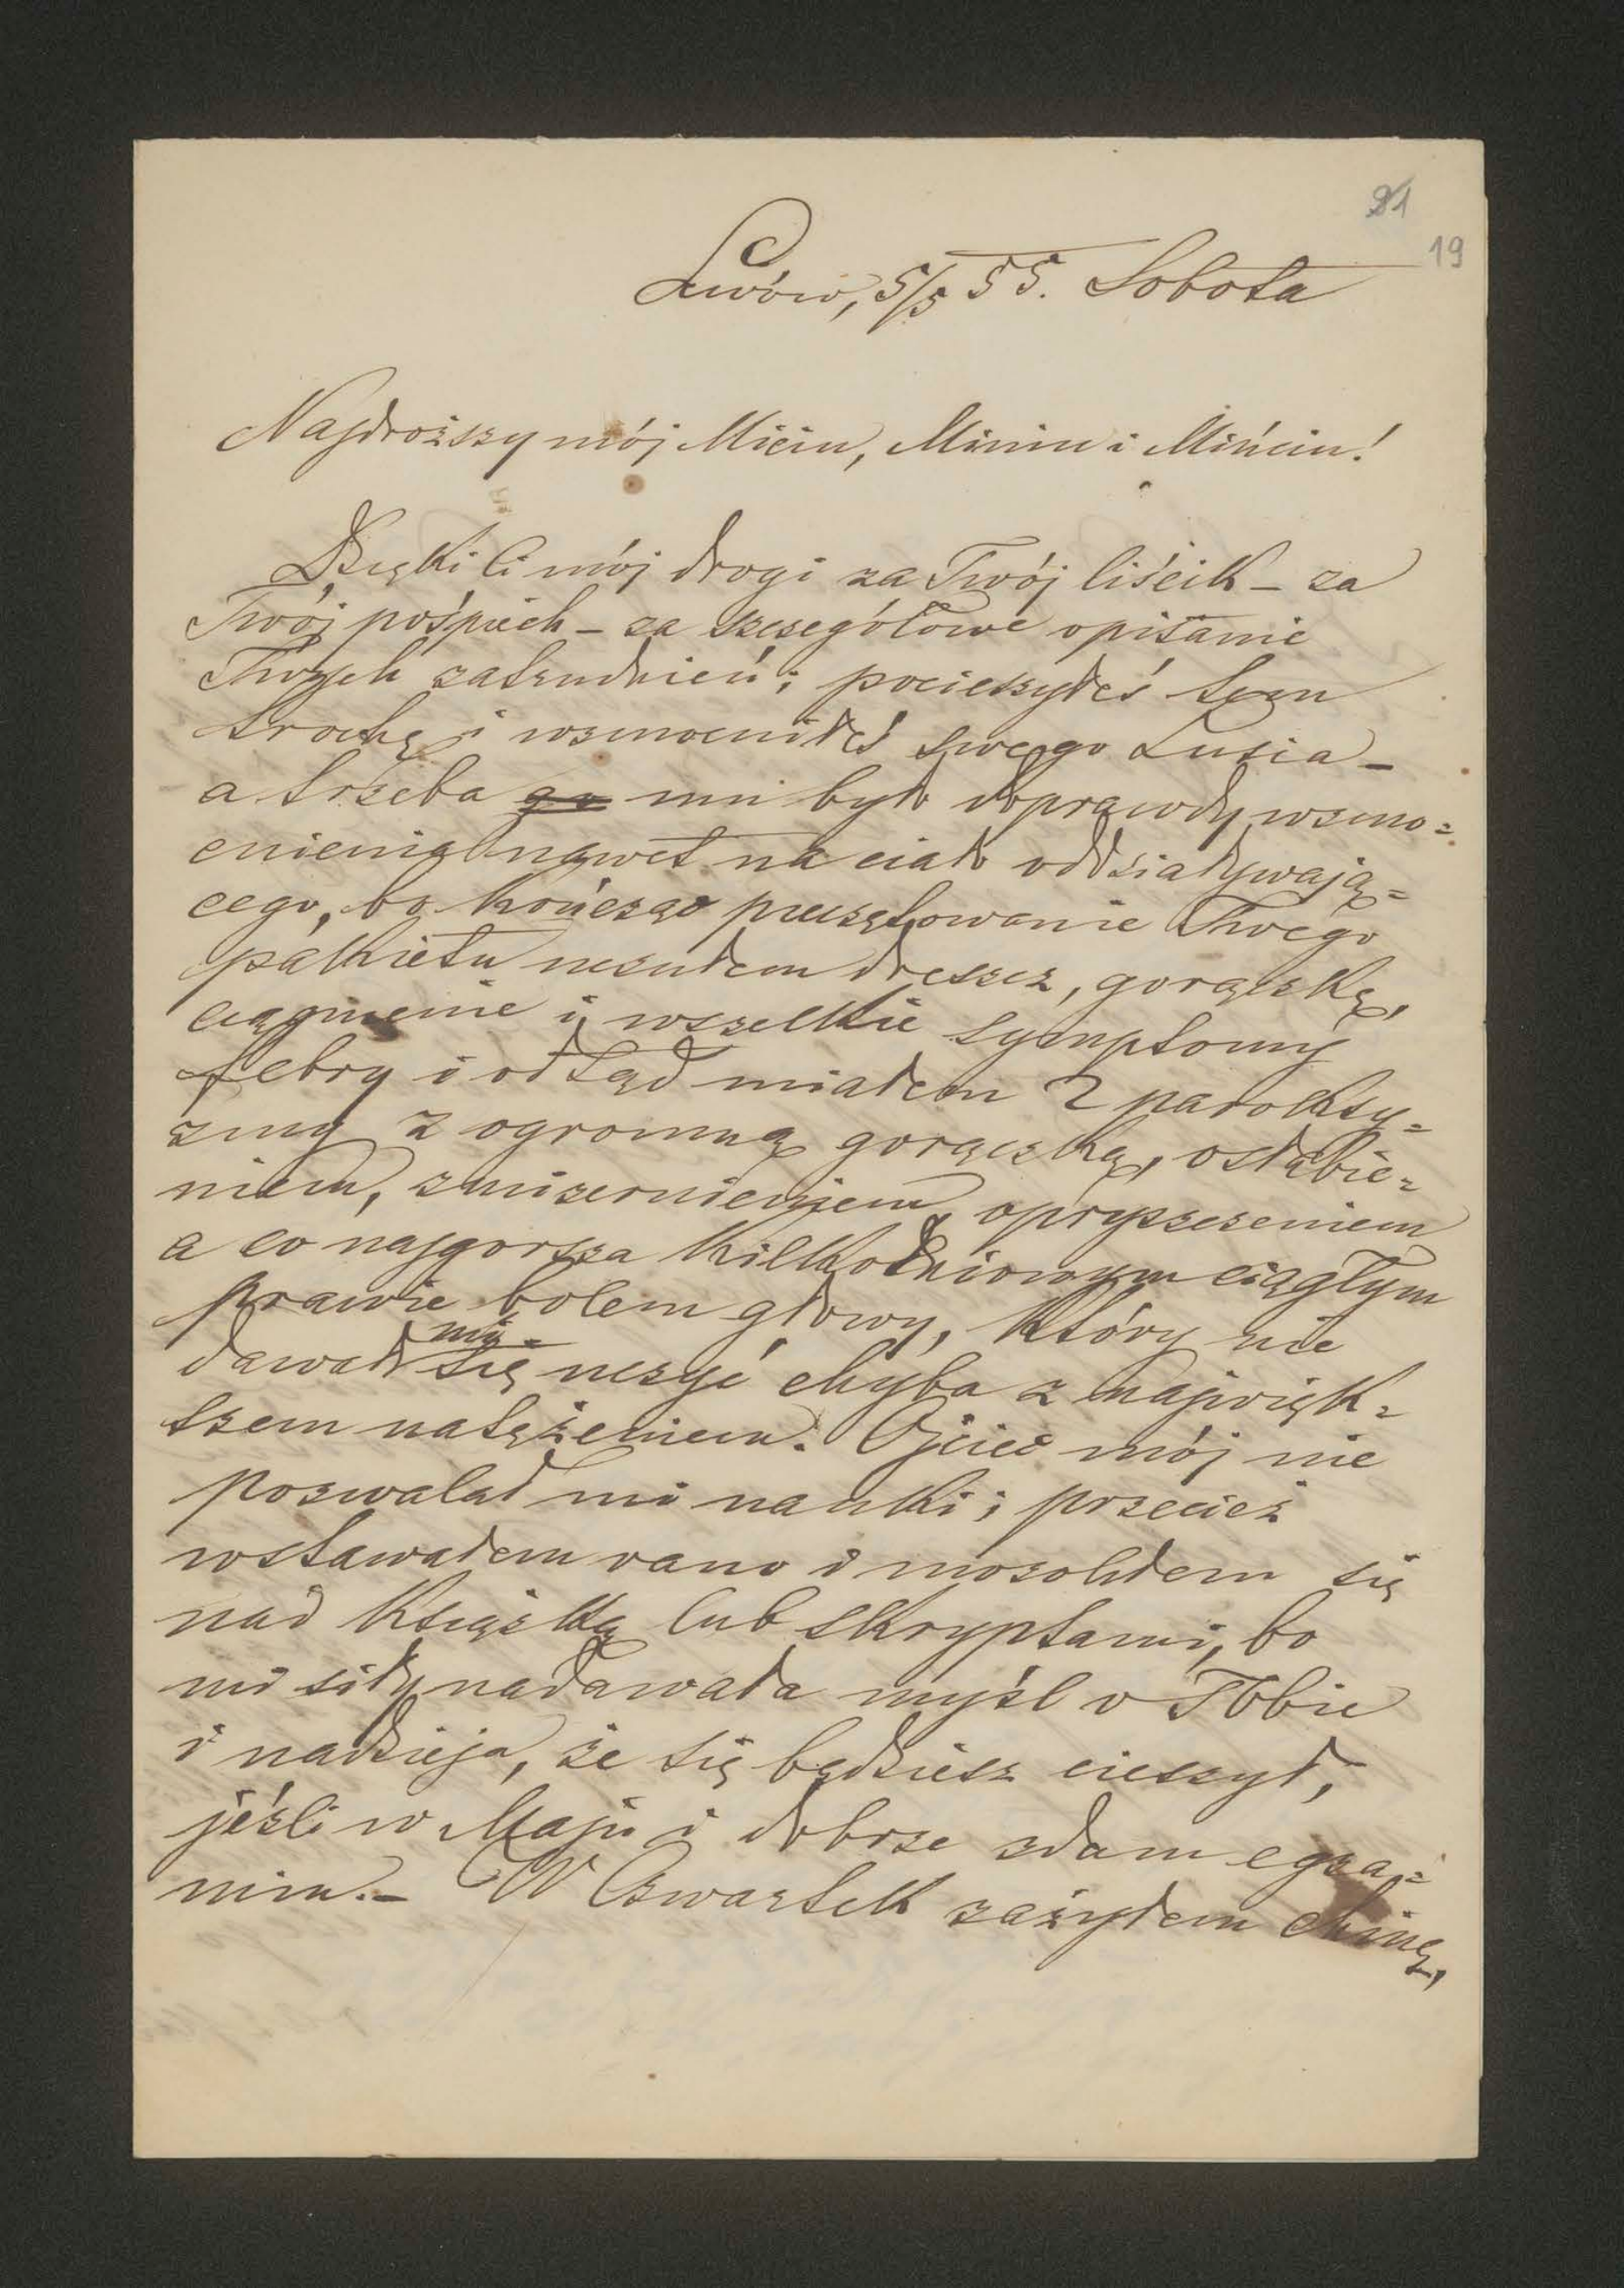 21
19
Lwów, 5/5 55. Sobota
Najdroższy mój Miciu, Miniu i Mińciu!
Dzięki Ci mój drogi za Twój liścik – za
Twój pośpiech – za szczegółowe opisanie
Twych zatrudnień; pocieszyłeś tem
trochę i wzmocniłeś swego Lusia –
a trzeba go mi było doprawdy wzmo=
cnienia nawet na ciało oddziaływają=
cego, bo kończąc pieczętowanie Twego
pakietu uczułem dreszcz, gorączkę,
ciągnienie i wszelkie symptomy
febry i odtąd miałem 2 paroksy=
zmy z ogromną gorączką, osłabie=
niem, zmizernieniem, opryszczeniem
a co najgorsza kilkodniowym ciągłym
prawie bólem głowy, który nie
dawał mi się uczyć chyba z najwięk=
szem natężeniem. Ojciec mój nie
pozwalał mi nauki; przecież
wstawałem rano i mozoliłem się
nad książką lub skryptami, bo
mi siły nadawała myśl o Tobie
i nadzieja, że się będziesz cieszył,
jeśli w Maju i dobrze zdam egza=
min. – W Czwartek zażyłem chinę,